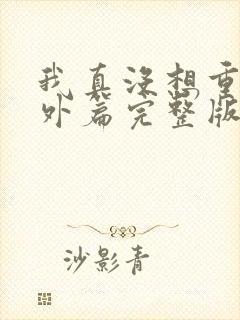 我真没想重
外篇完整版
沙影青